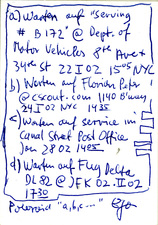 a) Warten auf "Serving
# B172" @ Dept. of
Motor Vehicles 8th Ave &
34th St 22 I 02 15:05 NYC
b) Warten auf Florian Peter
@ cscout.com 1140 B'way
24 I 02 NYC 14 35
c) Warten auf service in
Canal Street Post Office
Jan 28 02 14:05
d) Warten auf Flug Delta
DL 82 @ JFK 02. II 02
17 30
Polaroid "a, b, c..."